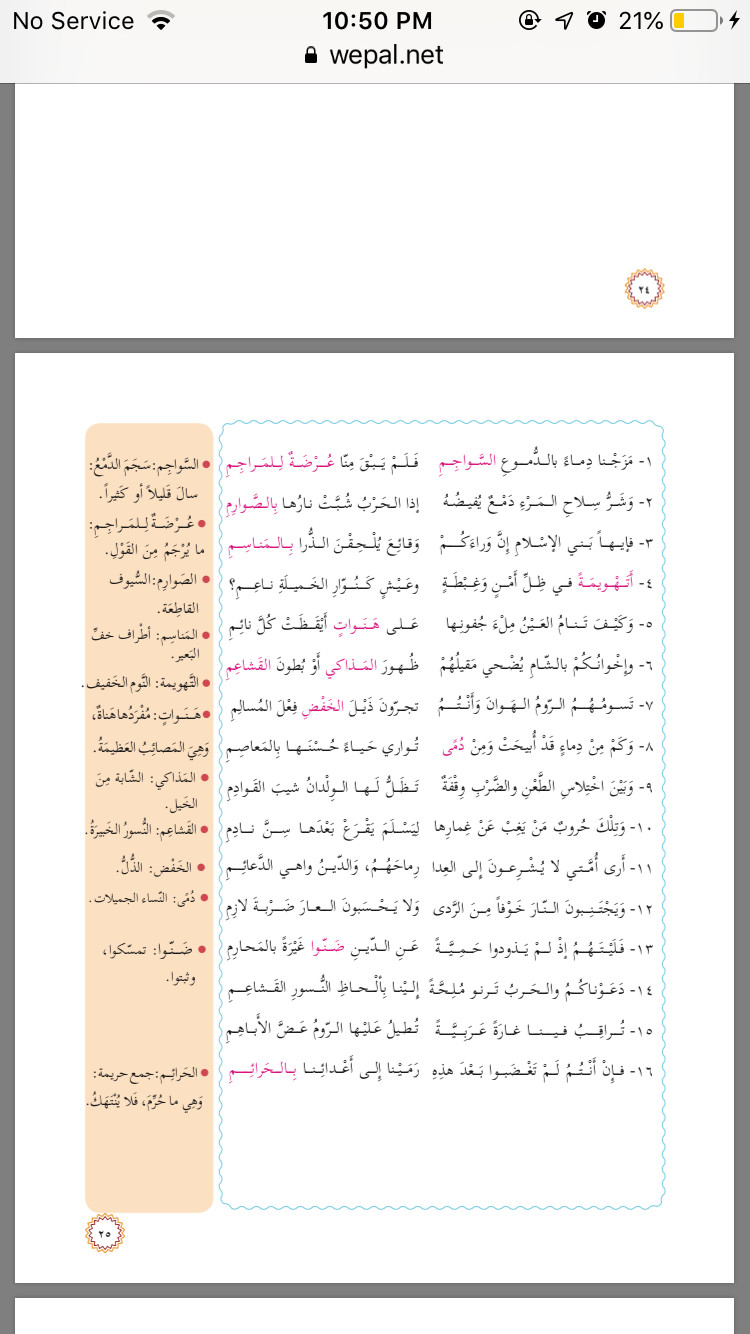 No Service 10:50 PM 21%
wepal.net
٢٤
١- مَزَجْنا دِماءً بالدُّموعِ السَّواجِمِ فَلَمْ يَبْقَ مِنّا عُرْضَةٌ لِلمَراجِمِ
٢- وَشَرُّ سِلاحِ المَرْءِ دَمْعٌ يُفيضُهُ إذا الحَرْبُ شُبَّتْ نارُها بِالصَّوارِمِ
٣- فإيهاً بَني الإسْلامِ إنَّ وَراءَكُمْ وَقائِعَ يُلْحِقْنَ الذُّرا بِالمَناسِمِ
٤- أَتَهْويمَةً في ظِلِّ أَمْنٍ وَغِبْطَةٍ وعَيْشٍ كَنُوّارِ الخَميلَةِ ناعِمِ؟
٥- وَكَيْفَ تَنامُ العَيْنُ مِلْءَ جُفونِها عَلى هَنَواتٍ أَيْقَظَتْ كُلَّ نائِمِ
٦- وإخْوانُكُمْ بالشّامِ يُضْحي مَقيلُهُمْ ظُهورَ المَذاكي أَوْ بُطونَ القَشاعِمِ
٧- تَسومُهُمُ الرّومُ الهَوانَ وَأَنْتُمُ تجرّونَ ذَيْلَ الخَفْضِ فِعْلَ المُسالِمِ
٨- وَكَمْ مِنْ دِماءٍ قَدْ أُبيحَتْ وَمِنْ دُمًى تُواري حَياءً حُسْنَها بِالمَعاصِمِ
٩- وَبَيْنَ اخْتِلاسِ الطَّعْنِ والضَّرْبِ وِقْفَةٌ تَظَلُّ لَها الوِلْدانُ شيبَ القَوادِمِ
١٠- وَتِلْكَ حُروبٌ مَنْ يَغِبْ عَنْ غِمارِها لِيَسْلَمَ يَقْرَعْ بَعْدَها سِنَّ نادِمِ
١١- أَرى أُمَّتي لا يُشْرِعونَ إلى العِدا رِماحَهُمُ، وَالدّينُ واهي الدَّعائِمِ
١٢- وَيَجْتَنِبونَ النّارَ خَوْفاً مِنَ الرَّدى وَلا يَحْسَبونَ العارَ ضَرْبةَ لازِمِ
١٣- فَلَيْتَهُمُ إذْ لمْ يَذودوا حَمِيَّةً عَنِ الدّينِ ضَنّوا غَيْرَةً بالمَحارِمِ
١٤- دَعَوْناكُمُ والحَربُ تَرنو مُلِحَّةً إلَيْنا بِأَلْحاظِ النُّسورِ القَشاعِمِ
١٥- تُراقِبُ فينا غارَةً عَرَبِيَّةً تُطيلُ عَلَيْها الرّومُ عَضَّ الأَباهِمِ
١٦- فإنْ أَنْتُمُ لَمْ تَغْضَبوا بَعْدَ هذِهِ رَمَيْنا إلى أَعْدائِنا بِالحَرائِمِ
السَّواجِم: سَجَمَ الدَّمْعُ:
سالَ قَليلاً أو كَثيراً.
عُرْضَةٌ لِلمَراجِمِ:
ما يُرْجَمُ مِنَ القَوْلِ.
الصَوارِم: السُّيوف
القاطِعَة.
المَناسِم: أطْراف خفِّ
البَعير.
التَّهويمة: النَّوم الخَفيف.
هَنَوات: مُفْرَدُها هَناةٌ،
وَهِيَ المَصائِبُ العَظيمَةُ.
المَذاكي: الشّابة مِنَ
الخَيل.
القَشاعِم: النُّسورُ الكَبيرَةُ.
الخَفْض: الذُّلُّ.
دُمًى: النّساء الجميلات.
ضَنّوا: تمسّكوا،
وثبتوا.
الحَرائِم: جمع حريمة:
وَهِي ما حُرِّمَ، فَلا يُنْتَهَكُ.
٢٥